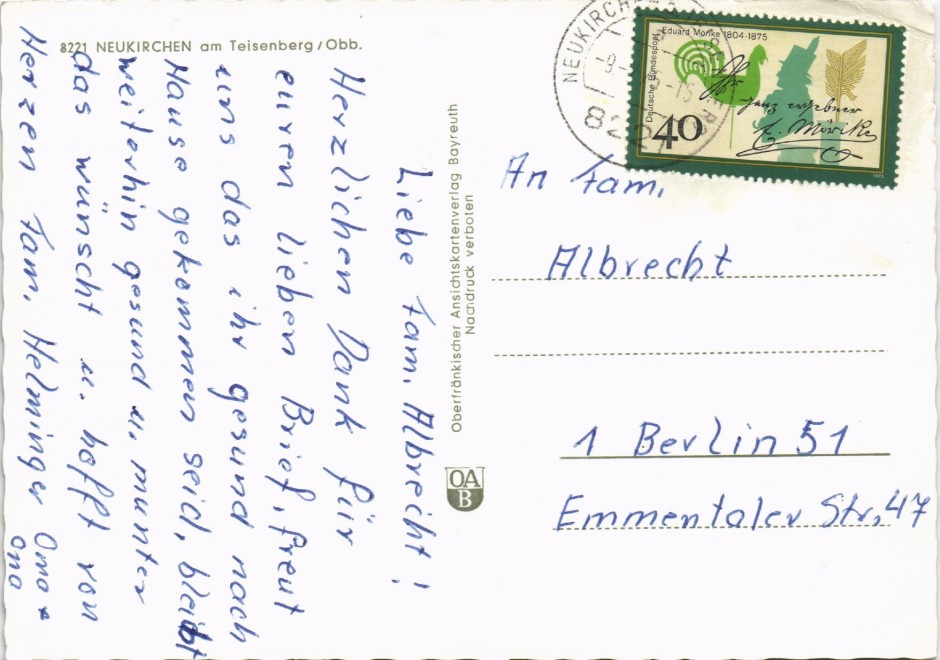 8221 NEUKIRCHEN am Teisenberg/Obb.
Liebe Fam. Albrecht!
Herzlichen Dank für
euren lieben Brief, freut
uns das ihr gesund nach
Hause gekommen seid, bleibt
weiterhin gesund u. munter
das wünscht u. hofft von
Herzen Fam. Helminger Oma +
Oma
Oberfränkischer Ansichtskartenverlag Bayreuth
Nachdruck verboten
OA
B
NEUKIRCHEN
8221
Eduard Mörike 1804-1875
Deutsche Bundespost
40
Ihr
ganz ergebner
E. Mörike
1975
An Fam.
Albrecht
1 Berlin 51
Emmentaler Str. 47